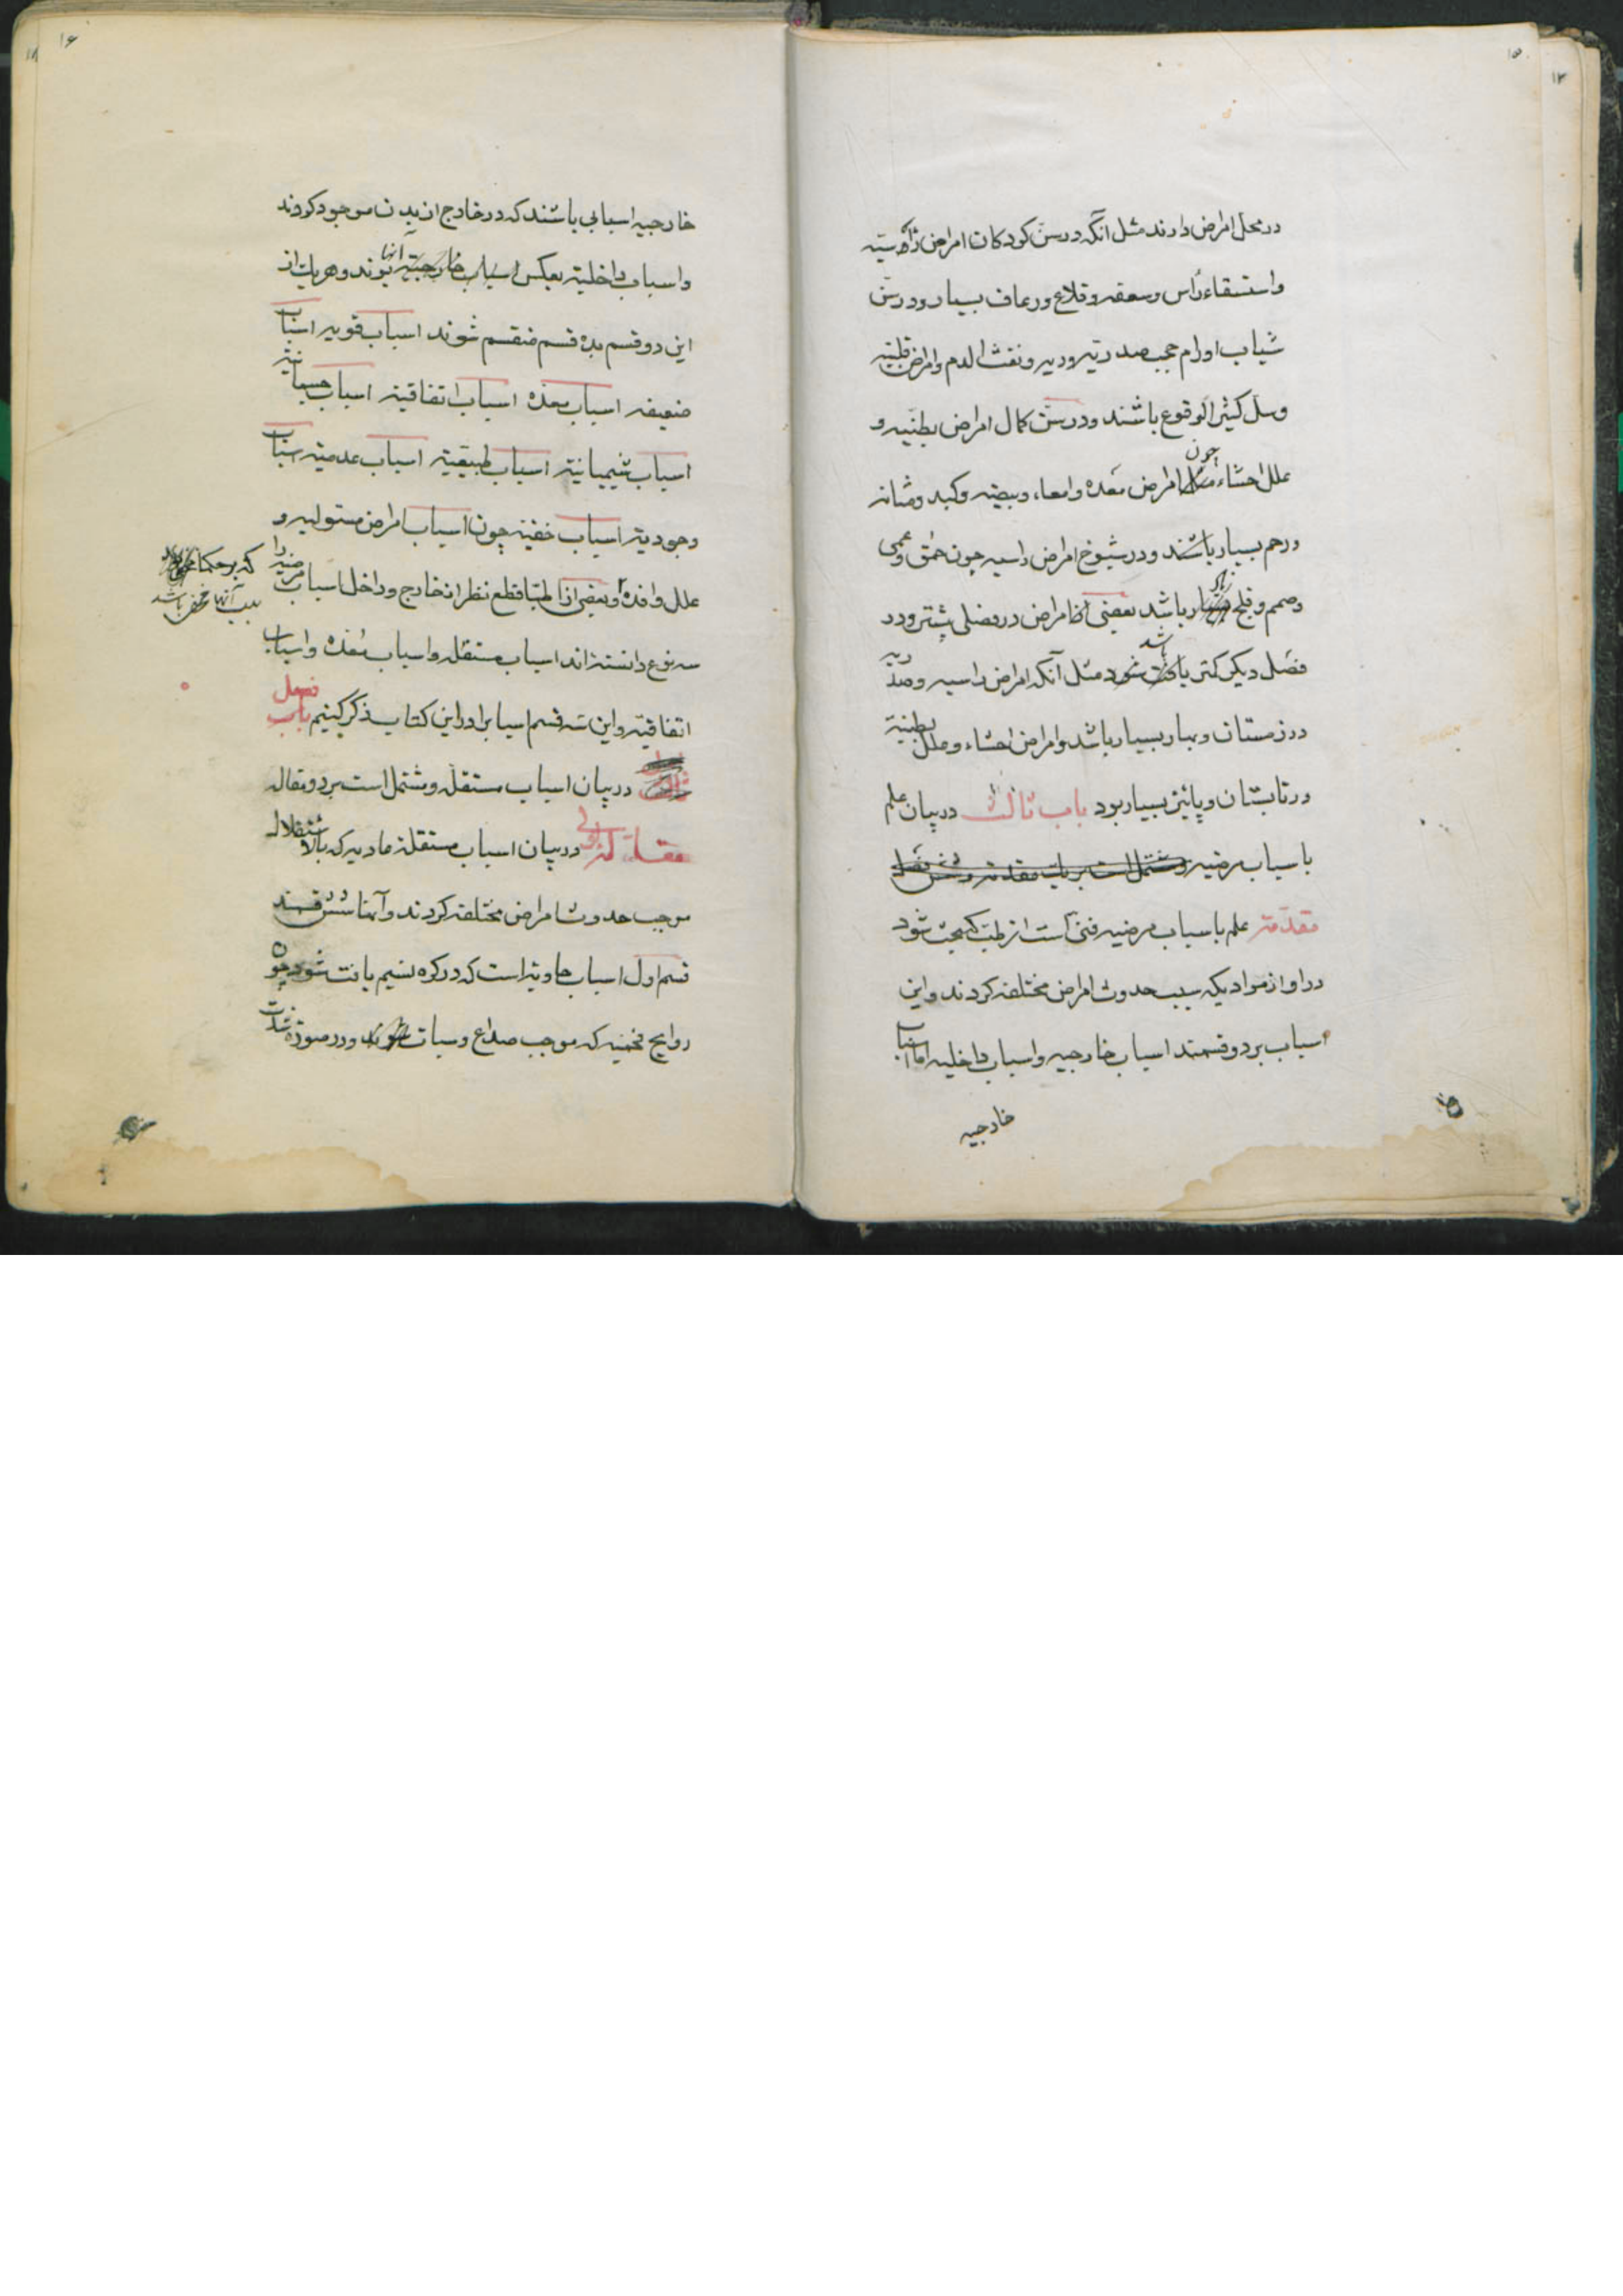 در محل امراض دارند مثل آنکه در سن کودکان امراض راسیّه
و استسقاء رأس و سعفه و قلاع و رعاف بسیار و در سن
شباب اورام حجب صدریّه و ریه و نفث الدم و امراض قلبیّه
و سل کثیر الوقوع باشند و در سن کمال امراض بطنیّه و
علل احشاء چون امراض معده و امعاء و بیضه و کبد و مثانه
و رحم بسیار باشند و در شیوخ امراض راسیه چون حمق و عمی
و صمم و فلج باشد بعضی از امراض در فصلی بیشتر و در
فصل دیگر کمتر باشد مثل آنکه امراض راسیه و صدریه
در زمستان و بهار بسیار باشد و امراض احشاء و علل بطنیّه
در تابستان و پائیز بسیار بود باب ثالث در بیان علم
باسباب مرضیه و مشتمل است بر یک مقدمه و شش فصل
مقدّمه علم باسباب مرضیه فنی است از طب که بحث شود
در او از موادیکه سبب حدوث امراض مختلفه کردند و این
اسباب بر دو قسمند اسباب خارجیه و اسباب داخلیه اما اسباب
خارجیه
خارجیه اسبابی باشند که در خارج از بدن موجود کردند
و اسباب داخلیّه بعکس آنها بوند و هر یک از
این دو قسم بده قسم منقسم شوند اسباب قویه اسباب
ضعیفه اسباب معدّه اسباب اتفاقیّه اسباب جسمانیّه
اسباب شیمیائیّه اسباب طبیعیّه اسباب عدمیّه اسباب
وجودیّه اسباب خفیّه چون اسباب امراض مستولیه و
علل وافده و بعضی از اطبّا قطع نظر از خارج و داخل اسباب مرضیه را
که بر حکما
سبب آنها مخفی باشد
سه نوع دانسته‌اند اسباب مستقله و اسباب معدّه و اسباب
اتفاقیّه و این سه قسم اسباب را در این کتاب ذکر کنیم باب
فصل
در بیان اسباب مستقله و مشتمل است بر دو مقاله
مقاله اولی در بیان اسباب مستقله مادیه که بالاستقلال
موجب حدوث امراض مختلفه کردند و آنها شش قسمند
قسم اول اسباب حاویه است که در کره نسیم یافت شود چون
روایح که موجب صداع و سبات شوند و در صورة شدت